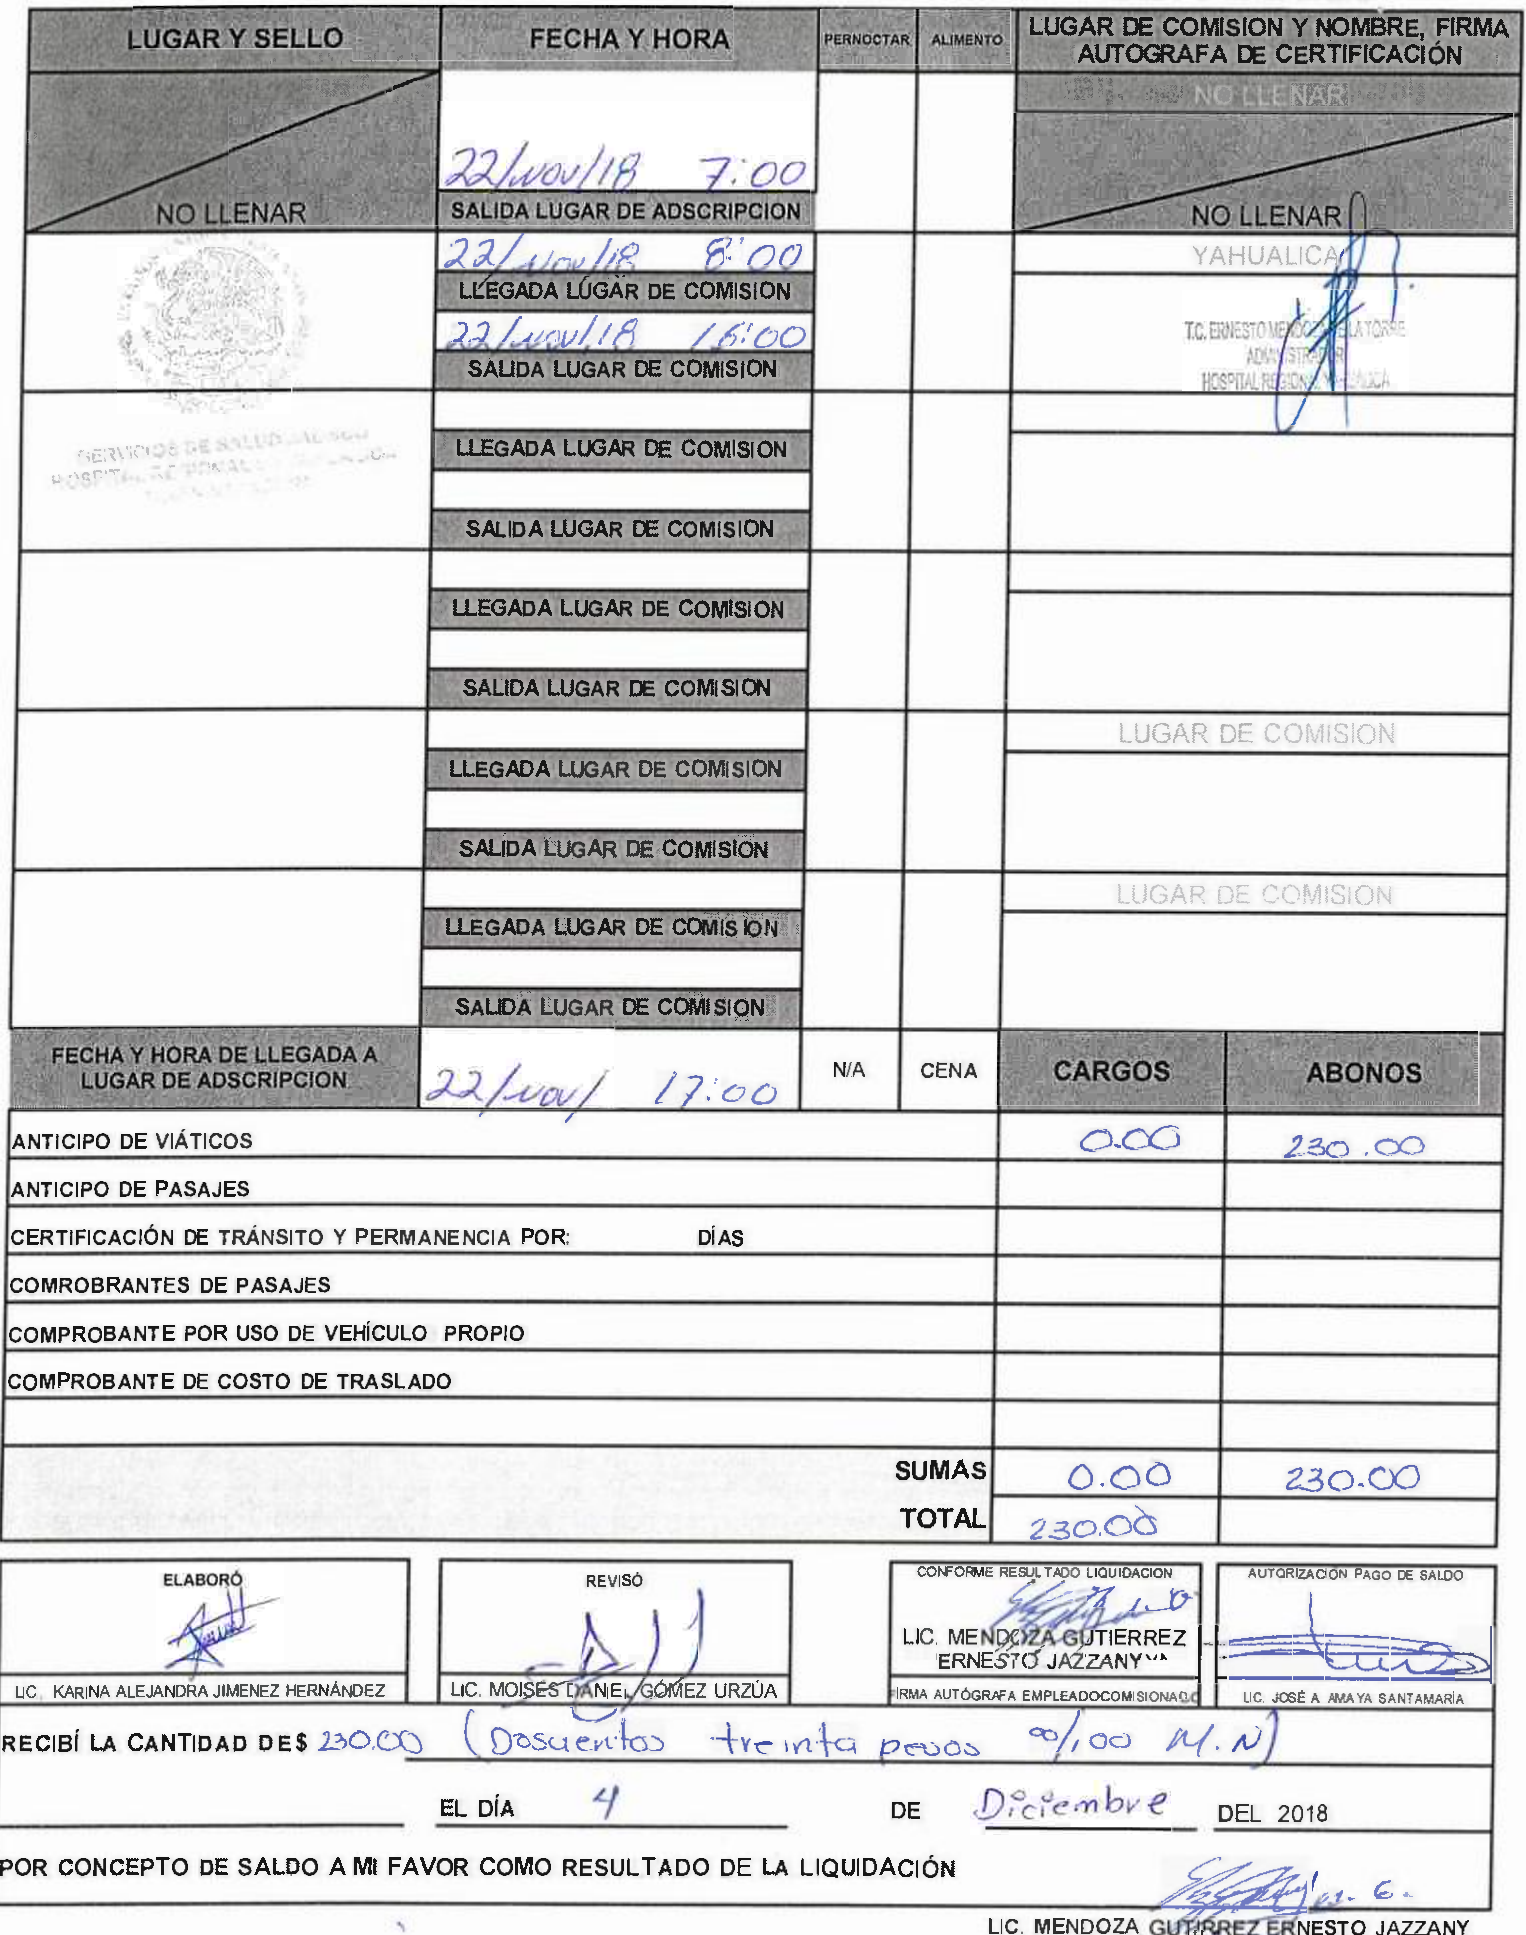 LUGAR Y SELLO
FECHA Y HORA
PERNOCTAR
ALIMENTO
LUGAR DE COMISION Y NOMBRE, FIRMA
AUTOGRAFA DE CERTIFICACIÓN
NO LLENAR
22/nov/18 7:00
NO LLENAR
SALIDA LUGAR DE ADSCRIPCION
NO LLENAR
22/nov/18 8:00
YAHUALICA
LLEGADA LUGAR DE COMISION
22/nov/18 16:00
T.C. ERNESTO MENDOZA DE LA TORRE
ADMINISTRADOR
HOSPITAL REGIONAL YAHUALICA
SALIDA LUGAR DE COMISION
SERVICIOS DE SALUD JALISCO
HOSPITAL REGIONAL
LLEGADA LUGAR DE COMISION
SALIDA LUGAR DE COMISION
LLEGADA LUGAR DE COMISION
SALIDA LUGAR DE COMISION
LUGAR DE COMISION
LLEGADA LUGAR DE COMISION
SALIDA LUGAR DE COMISION
LUGAR DE COMISION
LLEGADA LUGAR DE COMISION
SALIDA LUGAR DE COMISION
FECHA Y HORA DE LLEGADA A
LUGAR DE ADSCRIPCION
22/nov/ 17:00
N/A
CENA
CARGOS
ABONOS
ANTICIPO DE VIÁTICOS 0.00 230.00
ANTICIPO DE PASAJES
CERTIFICACIÓN DE TRÁNSITO Y PERMANENCIA POR: DÍAS
COMROBRANTES DE PASAJES
COMPROBANTE POR USO DE VEHÍCULO PROPIO
COMPROBANTE DE COSTO DE TRASLADO
SUMAS 0.00 230.00
TOTAL 230.00
ELABORÓ
LIC. KARINA ALEJANDRA JIMENEZ HERNÁNDEZ
REVISÓ
LIC. MOISES DANIEL GÓMEZ URZÚA
CONFORME RESULTADO LIQUIDACION
LIC. MENDOZA GUTIERREZ
ERNESTO JAZZANY
FIRMA AUTÓGRAFA EMPLEADOCOMISIONADO
AUTORIZACIÓN PAGO DE SALDO
LIC. JOSÉ A AMAYA SANTAMARÍA
RECIBÍ LA CANTIDAD DE$ 230.00 (Doscientos treinta pesos 00/100 M.N)
EL DÍA 4 DE Diciembre DEL 2018
POR CONCEPTO DE SALDO A MI FAVOR COMO RESULTADO DE LA LIQUIDACIÓN
LIC. MENDOZA GUTIRREZ ERNESTO JAZZANY